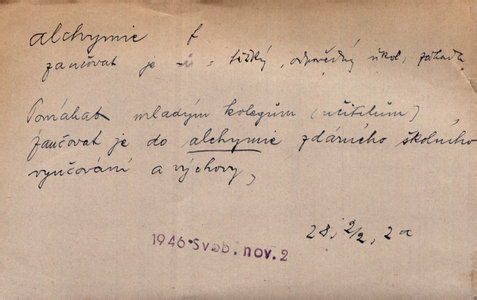 alchymie f
zaučovat je = těžký, odpovědný úkol, záhada
Pomáhat mladým kolegům (učitelům),
zaučovat je do alchymie zdárného školního
vyučování a výchovy,
28, 2/2, 2a
1946 Svob. nov. 2